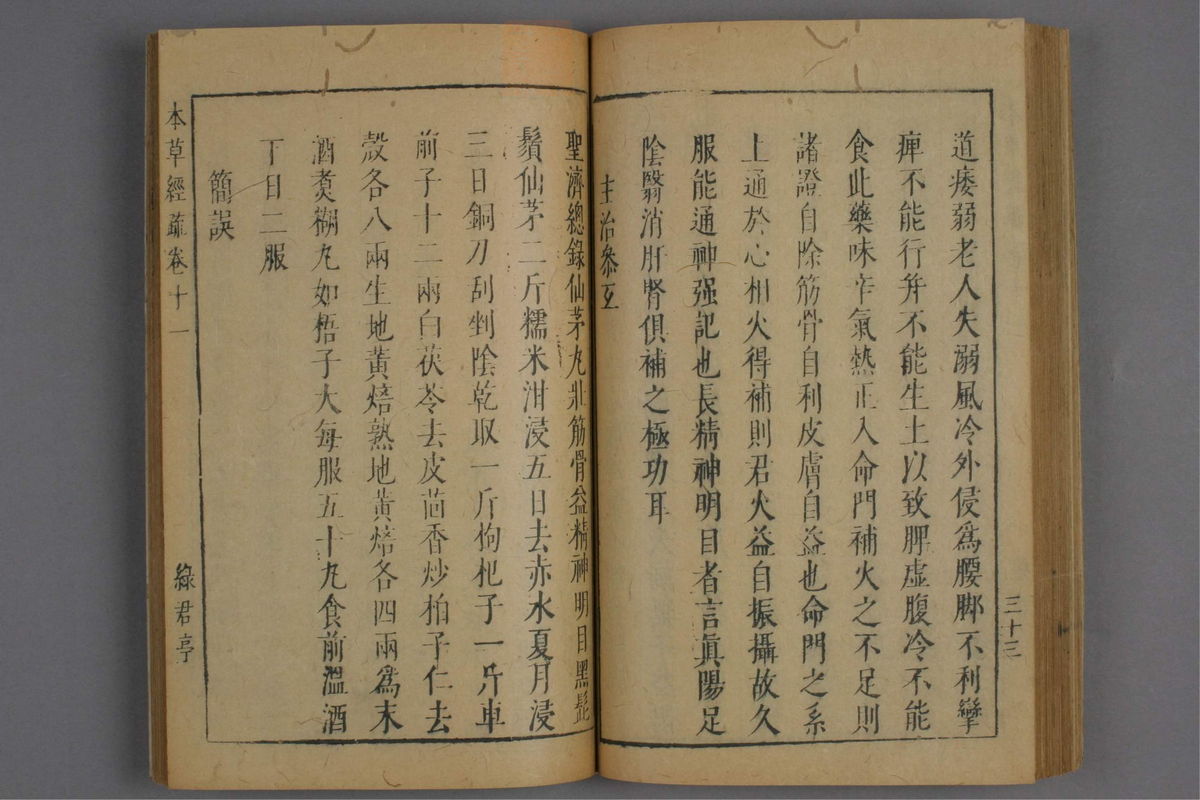 三十三
道痿弱老人失溺風冷外侵爲腰脚不利攣
痺不能行幷不能生土以致脾虛腹冷不能
食此藥味辛氣熱正入命門補火之不足則
諸證自除筋骨自利皮膚自益也命門之系
上通於心相火得補則君火益自振攝故久
服能通神强記也長精神明目者言眞陽足
陰翳消肝腎俱補之極功耳
主治參互
聖濟總錄仙茅丸壯筋骨益精神明目黑髭
鬚仙茅二斤糯米泔浸五日去赤水夏月浸
三日銅刀刮剉陰乾取一斤枸杞子一斤車
前子十二兩白茯苓去皮茴香炒柏子仁去
殼各八兩生地黃焙熟地黃焙各四兩爲末
酒煑糊丸如梧子大每服五十丸食前溫酒
下日二服
簡誤
本草經疏卷十一
綠君亭